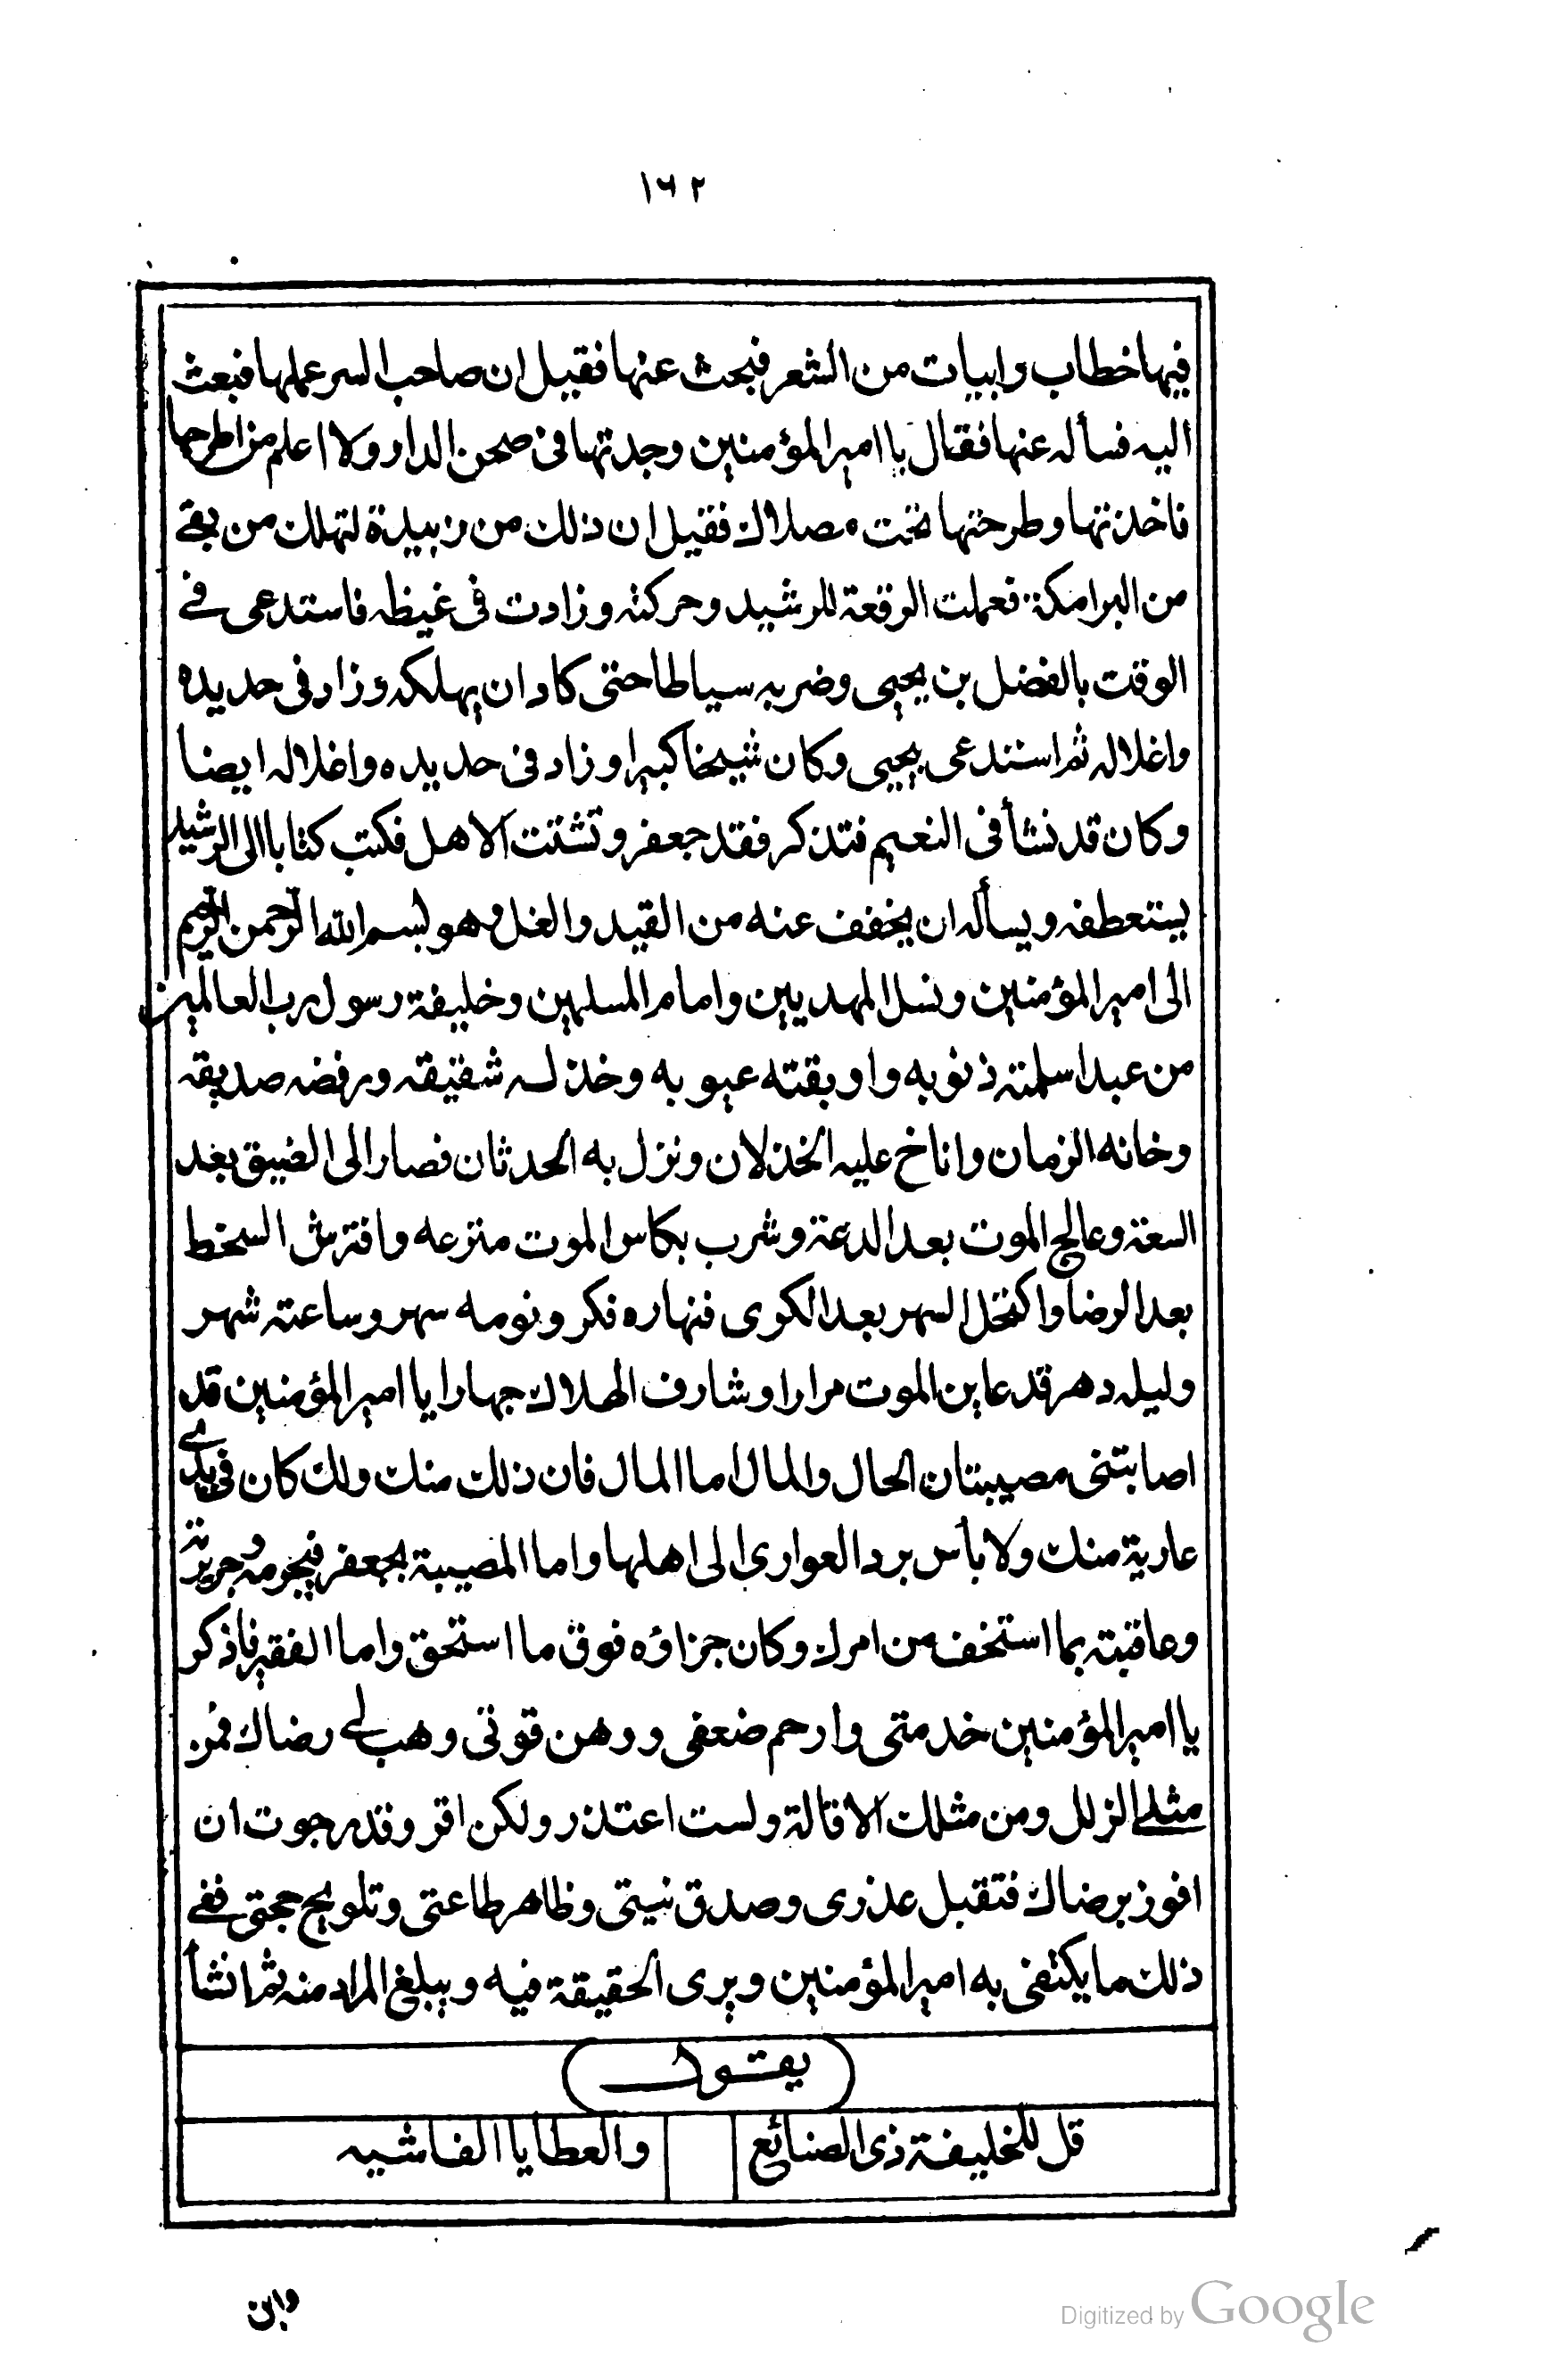 ١٦٢
فيها خطاب وابيات من الشعر فبحث عنها فقيل ان صاحب السر عملها فبعث
اليه فسأله عنها فقال يا امير المؤمنين وجدتها في صحن الدار ولا اعلم من اطرحها
فاخذتها وطرحتها تحت مصلاك فقيل ان ذلك من زبيدة لتهلك من بقي
من البرامكة فعملت الرقعة للرشيد وحركته وزادت في غيظه فاستدعى في
الوقت بالفضل بن يحيى وضربه سياطا حتى كاد ان يهلكه وزاد في حديده
واغلاله ثم استدعى بيحيى وكان شيخا كبيرا وزاد في حديده واغلاله ايضا
وكان قد نشأ في النعيم فتذكر فقد جعفر وتشتت الاهل فكتب كتابا الى الرشيد
يستعطفه ويسأله ان يخفف عنه من القيد والغل وهو بسم الله الرحمن الرحيم
الى امير المؤمنين ونسل المهديين وامام المسلمين وخليفة رسول رب العالمين
من عبد اسلمته ذنوبه واوبقته عيوبه وخذله شفيقه ورفضه صديقه
وخانه الزمان واناخ عليه الخذلان ونزل به الحدثان فصار الى الضيق بعد
السعة وعالج الموت بعد الدعة وشرب بكاس الموت مترعه وافترش السخط
بعد الرضا واكتحل السهر بعد الكرى فنهاره فكر ونومه سهر وساعته شهر
وليله دهر قد عاين الموت مرارا وشارف الهلاك جهارا يا امير المؤمنين قد
اصابتنى مصيبتان الحال والمال اما المال فان ذلك منك ولك كان في يدي
عارية منك ولا بأس برد العوارى الى اهلها واما المصيبة بجعفر فبجرمه وجريرته
وعاقبته بما استخف من امرك وكان جزاؤه فوق ما استحق واما الفقير فاذكر
يا امير المؤمنين خدمتى وارحم ضعفى ووهن قوتى وهب لي رضاك فمن
مثلي الزلل ومن مثلك الاقالة ولست اعتذر ولكن اقر وقد رجوت ان
افوز برضاك فتقبل عذرى وصدق نيتى وظاهر طاعتى وتلويح حجتى ففي
ذلك ما يكتفى به امير المؤمنين ويرى الحقيقة فيه ويبلغ المراد منه ثم انشأ
يقول
قل للخليفة ذى الصنائع والعطايا الفاشيه
وابن
Digitized by Google